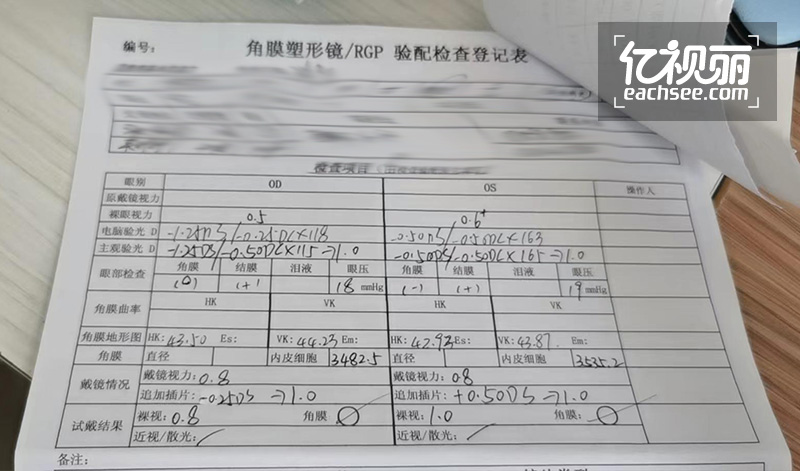 亿视丽
eachsee.com
编号: 角膜塑形镜/RGP 验配检查登记表
检查项目
眼别 OD OS 操作人
原戴镜视力
裸眼视力 0.5 0.6+
电脑验光 D -1.25DS/-0.25DC×118 -0.50DS/-0.50DC×163
主观验光 D -1.25DS/-0.50DC×115→1.0 -0.50DS/-0.50DC×165→1.0
眼部检查 角膜 结膜 泪液 眼压 角膜 结膜 泪液 眼压
(+) 18 mmHg (-) (+) 19 mmHg
角膜曲率 HK VK HK VK
角膜地形图 HK: 43.50 Es: VK: 44.23 Em: HK: 42.93 Es: VK: 43.87 Em:
角膜 直径 内皮细胞 3482.5 直径 内皮细胞 3535.2
戴镜情况 戴镜视力: 0.8 戴镜视力: 0.8
追加插片: -0.25DS→1.0 追加插片: +0.50DS→1.0
试戴结果 裸视: 0.8 角膜: 裸视: 1.0 角膜:
近视/散光: 近视/散光:
备注: